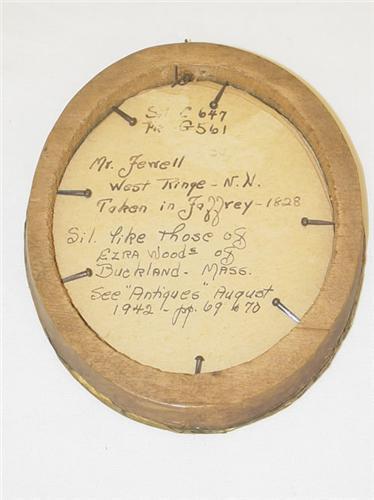 Sil C 647
Fr. G561
Mr. Ferrell
West Ringe - N.H.
Taken in Jaffrey - 1828
Sil. like those of
EZRA Woods of
Buckland - Mass.
See "Antiques" August
1942 - pp. 69 & 70